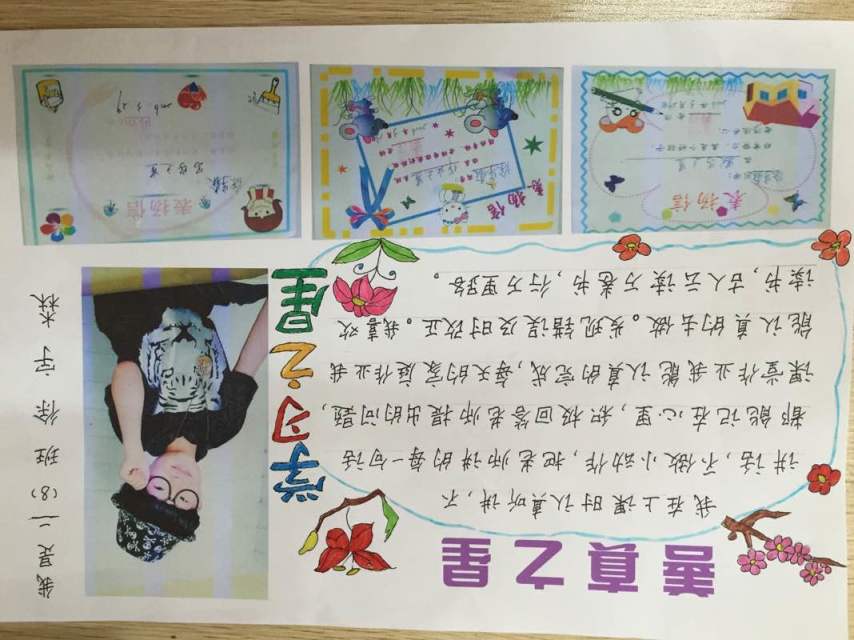 善真之星
我在上课时认真听讲，不
讲话，不做小动作，把老师讲的每一句话
都能记在心里，积极回答老师提出的问题，
课堂作业我能认真的完成，每天的家庭作业我
能认真的去做。发现错误及时改正。我喜欢
读书，古人云读万卷书，行万里路。
学习之星
我是二(8)班徐宇森
表扬信
表扬信
表扬信